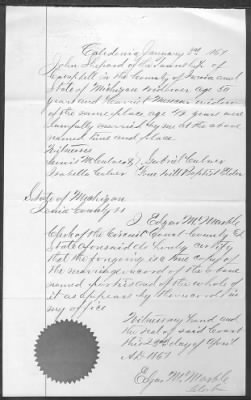 Caledonia January 8th 1867
John Shepard of the Township of
Campbell in the County of Ionia and
State of Michigan widower age 50
years and Harriet widow
of the same place age 48 years were
lawfully married by me at the above
named time and place
Witnesses
Gabriel Culver
Isabella Culver Free Will Baptist Elder
State of Michigan
Ionia County ss
I Edgar M. Marble
Clerk of the Circuit Court County &
State aforesaid do hereby certify
that the foregoing is a true copy of
the marriage record of the above
named parties and of the whole of
it as appears by the records in
my office
Witness my hand and
the seal of said Court
this 23d day of April
AD 1867
Edgar M. Marble
Clerk